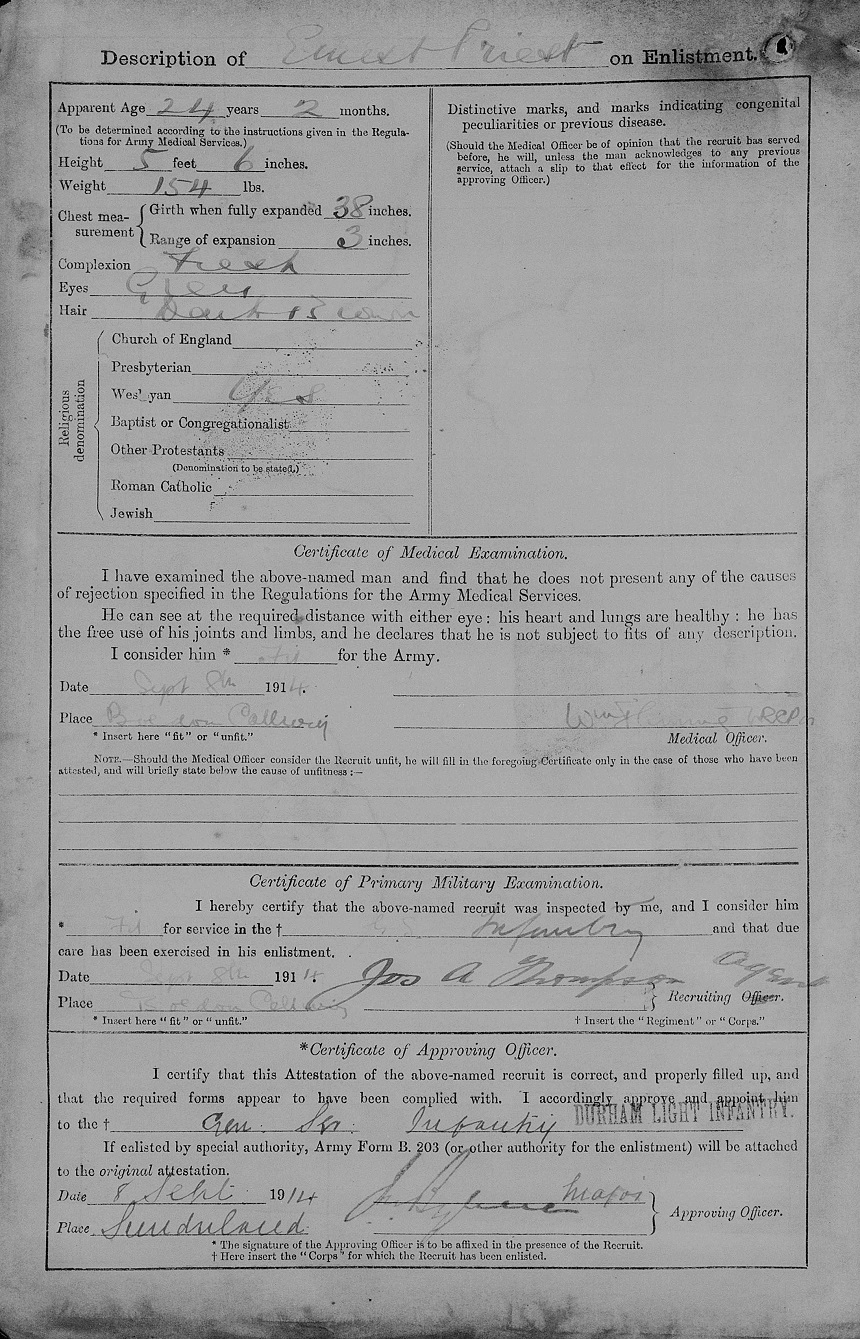 Description of Ernest Priest on Enlistment.
Apparent Age 24 years 2 months.
(To be determined according to the instructions given in the Regula-
tions for Army Medical Services.)
Height 5 feet 6 inches.
Weight 154 lbs.
Chest mea-
surement
Girth when fully expanded 38 inches.
Range of expansion 3 inches.
Complexion Fresh
Eyes Grey
Hair Dark Brown
Religious
denomination
Church of England
Presbyterian
Wes'yan Yes
Baptist or Congregationalist
Other Protestants
(Denomination to be stated.)
Roman Catholic
Jewish
Distinctive marks, and marks indicating congenital
peculiarities or previous disease.
(Should the Medical Officer be of opinion that the recruit has served
before, he will, unless the man acknowledges to any previous
service, attach a slip to that effect for the information of the
approving Officer.)
Certificate of Medical Examination.
I have examined the above-named man and find that he does not present any of the causes
of rejection specified in the Regulations for the Army Medical Services.
He can see at the required distance with either eye: his heart and lungs are healthy: he has
the free use of his joints and limbs, and he declares that he is not subject to fits of any description.
I consider him * fit for the Army.
Date Sept 8th 1914.
Place Boldon Colliery
* Insert here "fit" or "unfit."
Medical Officer.
NOTE.—Should the Medical Officer consider the Recruit unfit, he will fill in the foregoing Certificate only in the case of those who have been
attested, and will briefly state below the cause of unfitness:—
Certificate of Primary Military Examination.
I hereby certify that the above-named recruit was inspected by me, and I consider him
* Fit for service in the † G S Infantry and that due
care has been exercised in his enlistment.
Date Sept 8th 1914. Jos A Thompson Agent
Place Boldon Colliery
Recruiting Officer.
* Insert here "fit" or "unfit."
† Insert the "Regiment" or "Corps."
*Certificate of Approving Officer.
I certify that this Attestation of the above-named recruit is correct, and properly filled up, and
that the required forms appear to have been complied with. I accordingly approve and appoint him
to the † Gen. Ser. Infantry DURHAM LIGHT INFANTRY.
If enlisted by special authority, Army Form B. 203 (or other authority for the enlistment) will be attached
to the original attestation.
Date 8 Sept 1914 Major
Place Sunderland
Approving Officer.
* The signature of the Approving Officer is to be affixed in the presence of the Recruit.
† Here insert the "Corps" for which the Recruit has been enlisted.